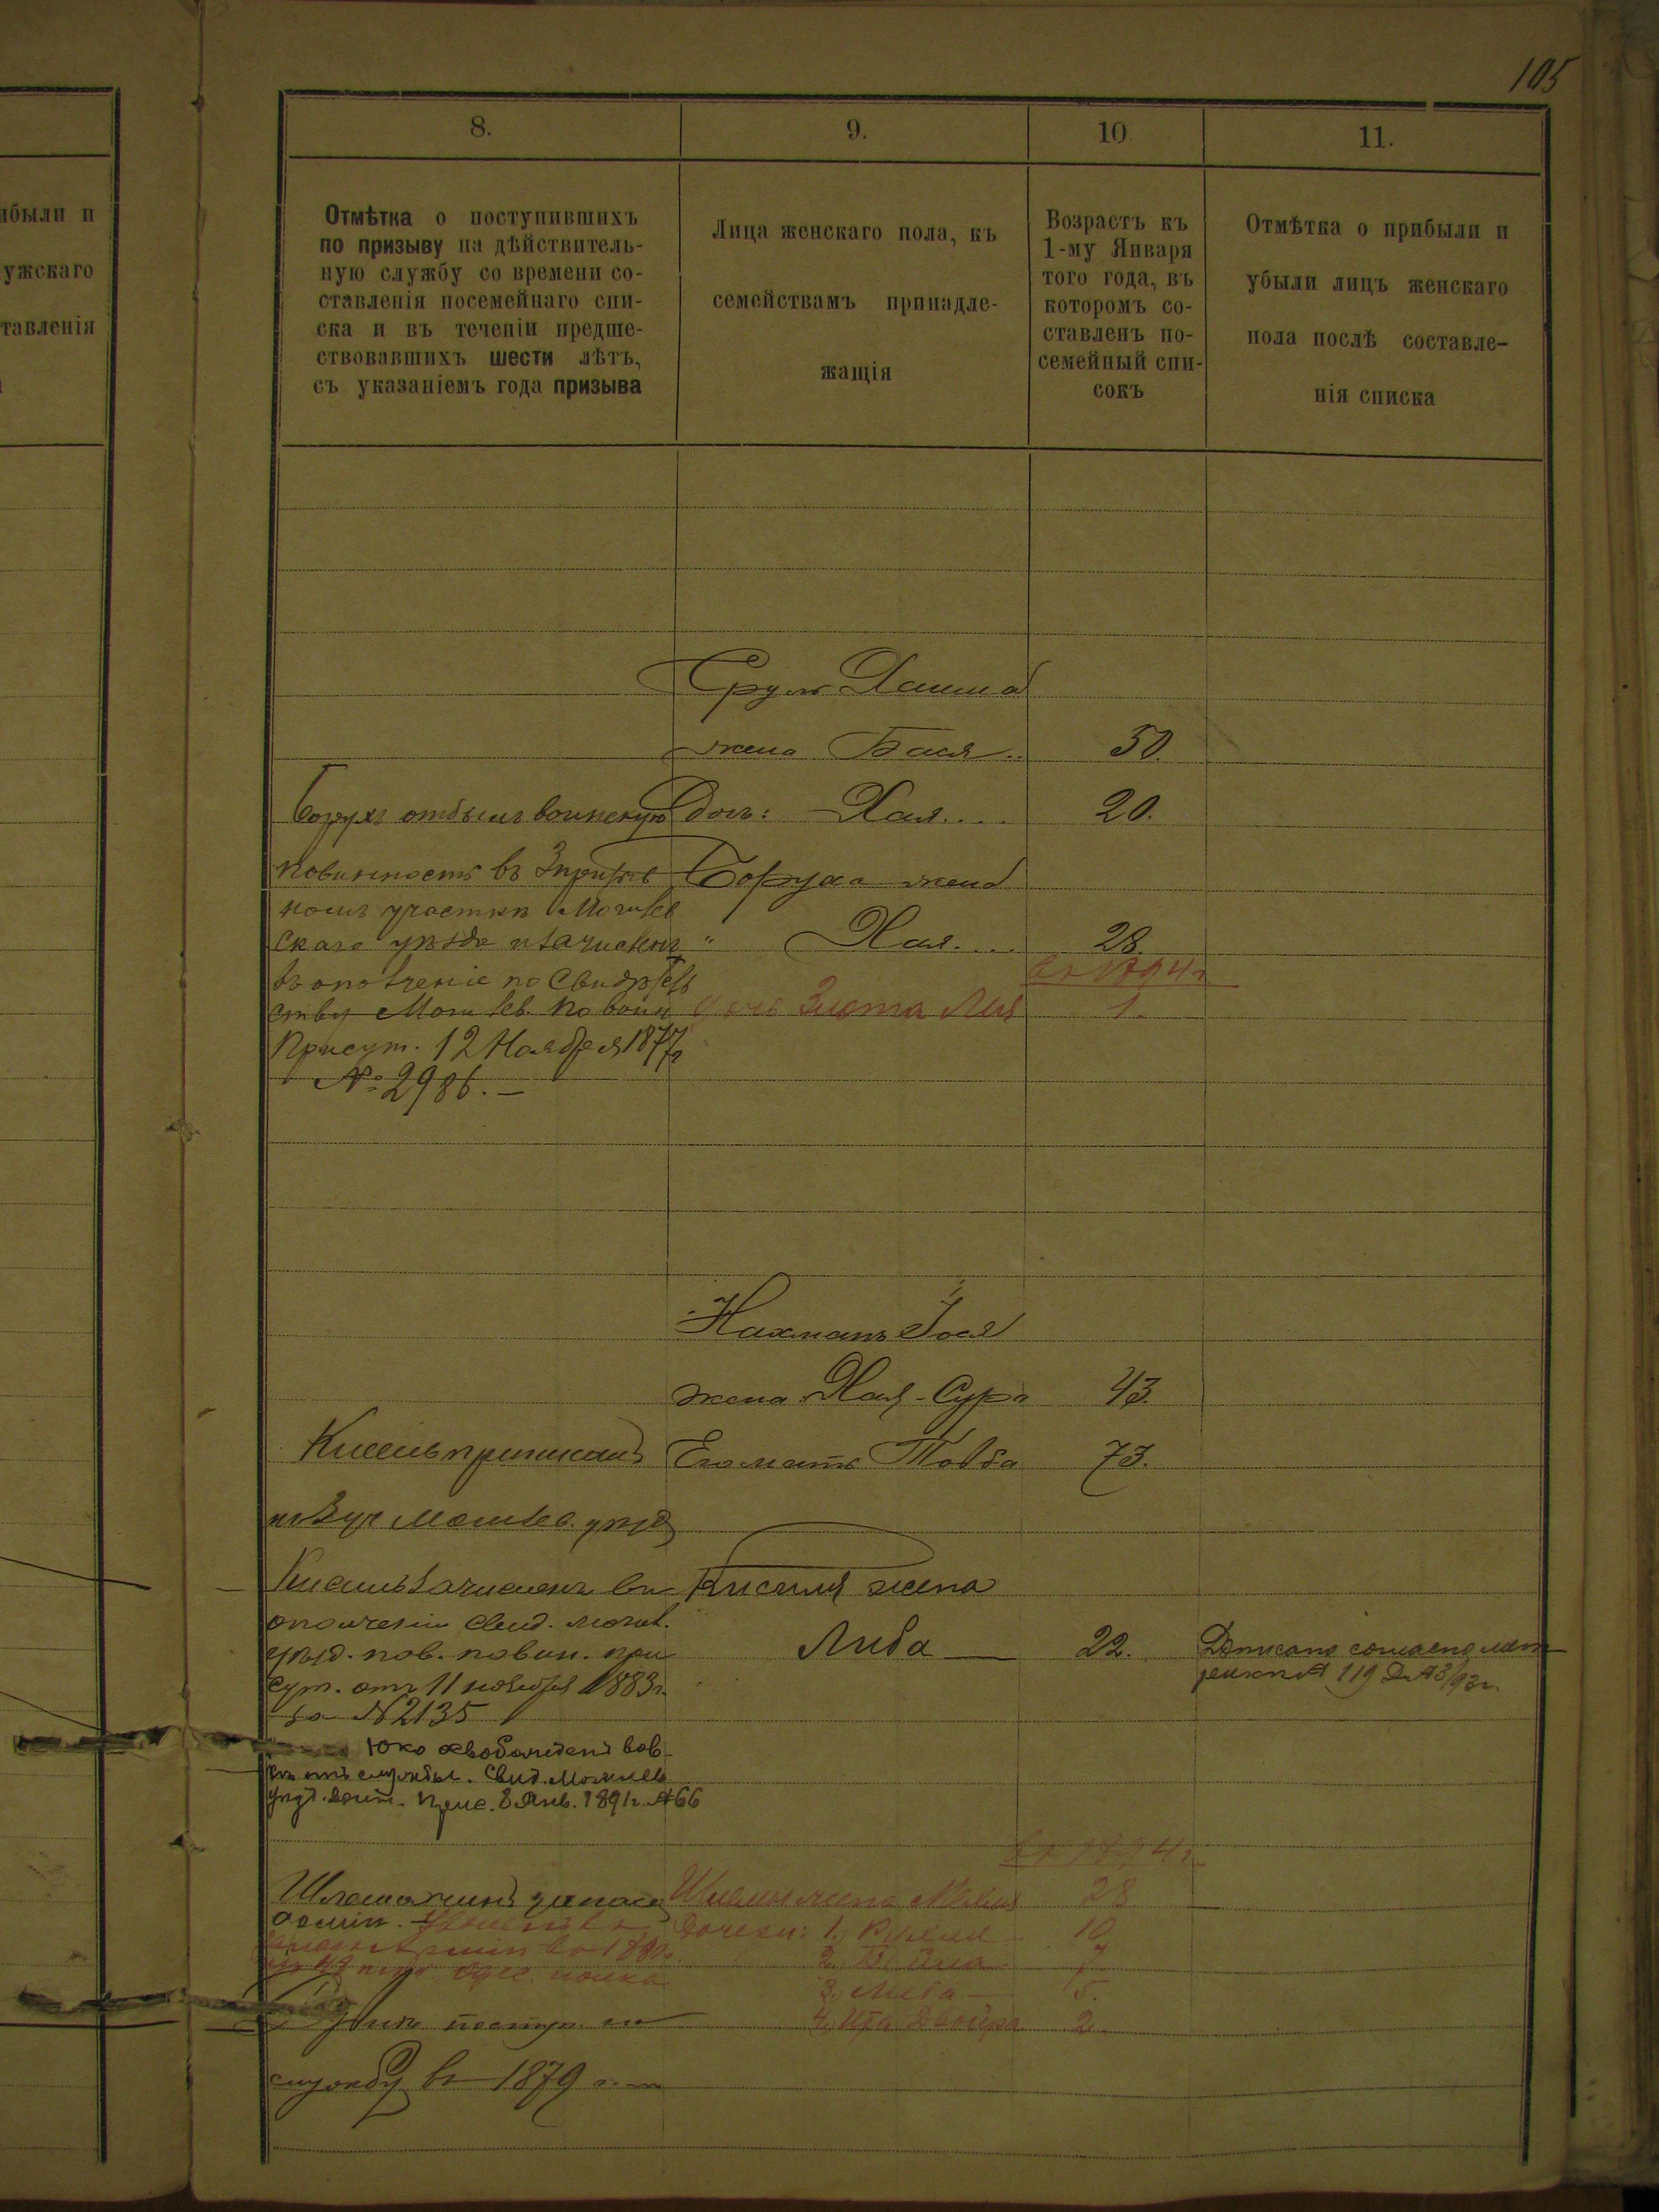 105
ибыли и
ужскаго
тавленія
8.
9.
10
11.
Отмѣтка о поступившихъ
по призыву на дѣйствитель-
ную службу со времени со-
ставленія посемейнаго спи-
ска и въ теченіи предше-
ствовавшихъ шести лѣтъ,
съ указаніемъ года призыва
Лица женскаго пола, къ
семействамъ принадле-
жащія
Возрастъ къ
1-му Января
того года, въ
которомъ со-
ставленъ по-
семейный спи-
сокъ
Отмѣтка о прибыли и
убыли лицъ женскаго
пола послѣ составле-
нія списка
Сруль Хаима
жена Бася.. 50.
Борухъ отбылъ воинскую
Доч: Хая.... 20.
повинность въ 3 призыв
номъ участкѣ Могилев
скаго уѣзда и зачисленъ
въ ополченіе по Свидѣтель
ству Могилев. по воин
Присут. 12 Ноября 1877 г
№ 2986.—
Боруха жена
" Хая.... 28.
въ 1894 г
дочь Злота Лия 1.
Нахманъ Іося
жена Хая-Сура 43.
Его мать Товба 73.
Кисель приписанъ
Могилев. уѣзд
Кисель зачисленъ въ
ополченіи Свид. Могил.
уѣзд. пов. повин. при
сут. отъ 11 ноября 1883 г.
за № 2135
Кисиля жена
Либа — 22.
Дописана согласно мет
119 Д. № 3/93 г.
освобожденъ вов-
отъ службы. Свид. Могилев
уѣзд. воин. прис. 8 Янв. 1891 г. № 66
въ 1894 г.
жена 28
дочери: 1. Рухля 10
2. 7
3. Либа — 5.
4. Двойра 2.
поступ. на
службу въ 1879 г.